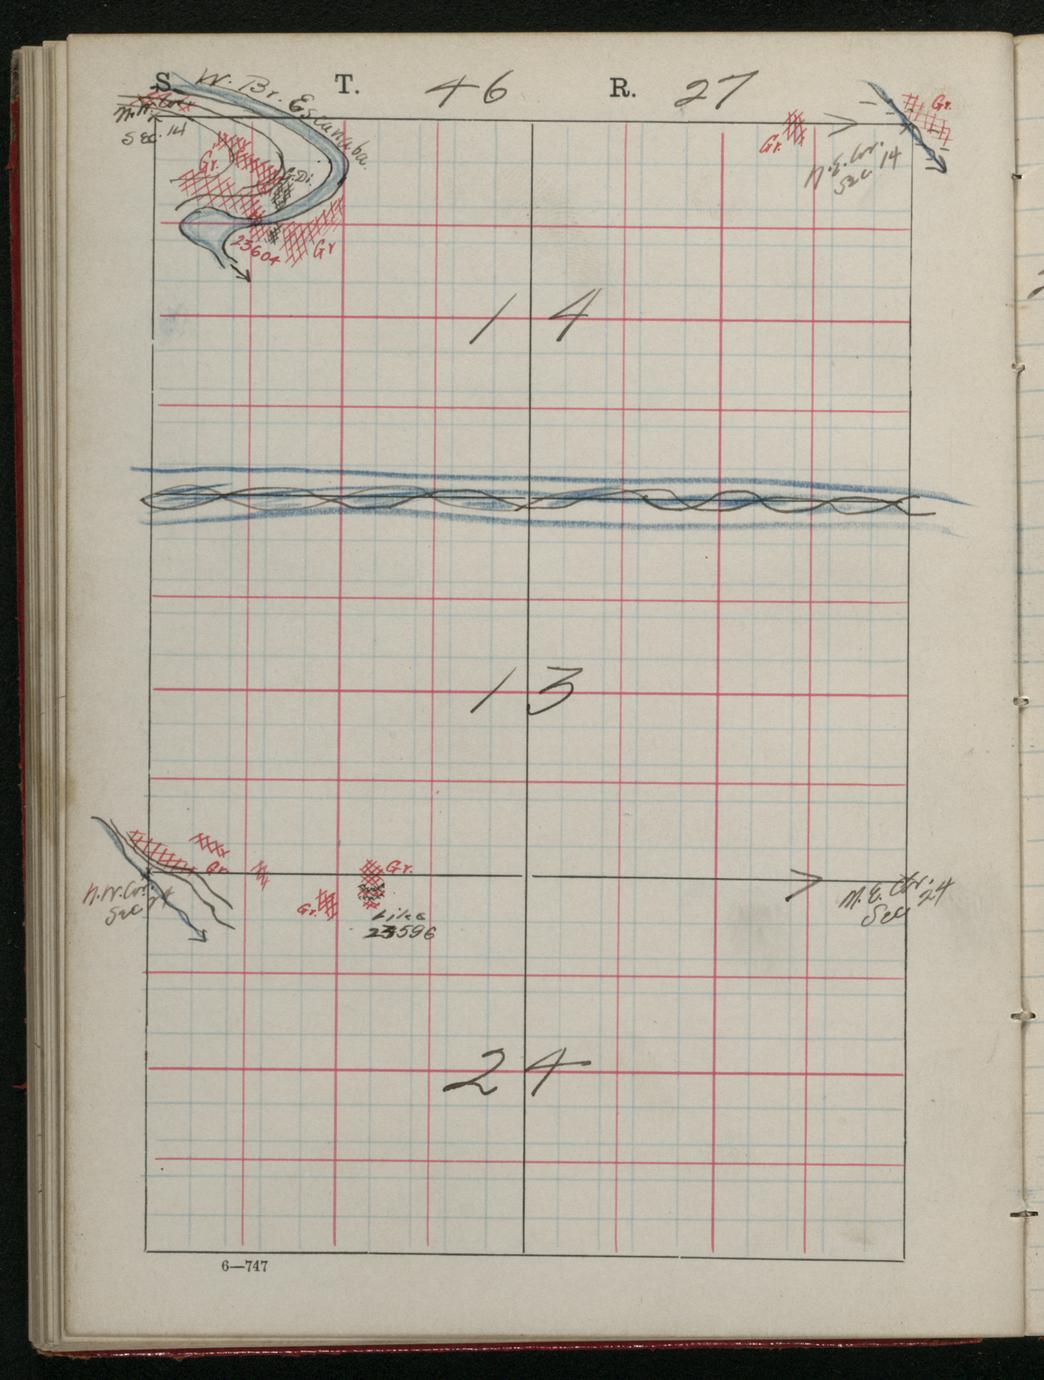 S. T. 46 R. 27
W. Br. Escanaba.
N.W. Cor.
Sec. 14
Gr.
Di.
23604
Gr
Gr.
Gr.
N.E. Cor.
Sec 14
14
13
Gr.
N.W. Cor.
Sec 24
Gr.
Gr.
Like
23596
N.E. Cor.
Sec 24
24
6—747